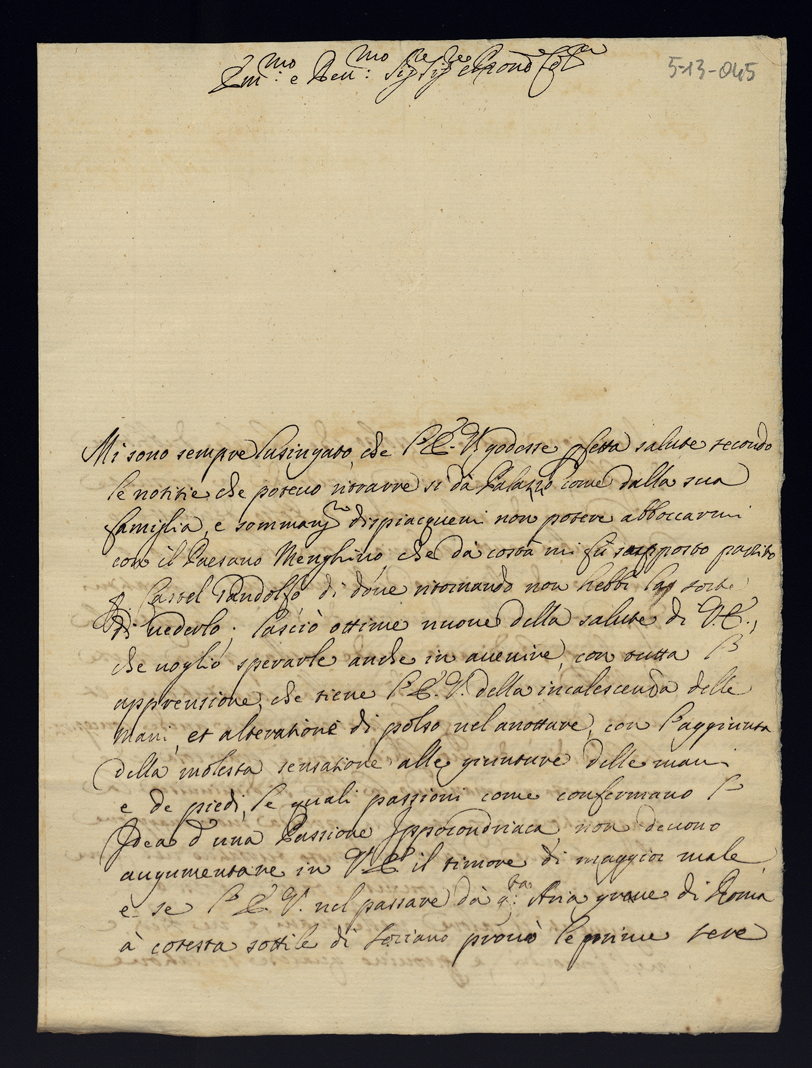 Em.mo e Rev.mo Sig.re Sig.re e Pron.e Col.mo
5-13-045
Mi sono sempre lusingato, che l'E. V. godesse p̱fetta salute secondo
le notitie che potevo ritrarre si dà Palazzo come dalla sua
famiglia, e sommam.te dispiacquemi non potere abboccarmi
con il Paesano Menghino che dà costà mi fù supposto partito
p̱ Castel Gandolfo di dove ritornando non hebbi la sorte
di vederlo; lasciò ottime nuove della salute di V.E.,
che voglio sperarle anche in avenire, con tutta l'
apprensione, che tiene l'E. V. della incalescenza delle
mani, et alteratione di polso nel anottare, con l'aggiunta
della molesta sensatione alle giunture delle mani
e de piedi, le quali passioni come confermano l'
Idea d'una Passione Ippocondriaca non devono
augumentare in V.E. il timore di maggior male
e se l'E. V. nel passare dà q.ta Aria grave di Roma
à cotesta sottile di Soriano provò le prime sere